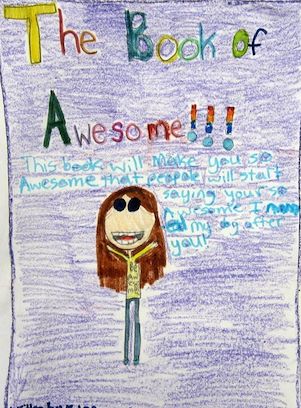 The Book of
Awesome!!!
This book will make you so
Awesome that people will start
saying your so
Awesome I
my dog after
you!
be Awesome